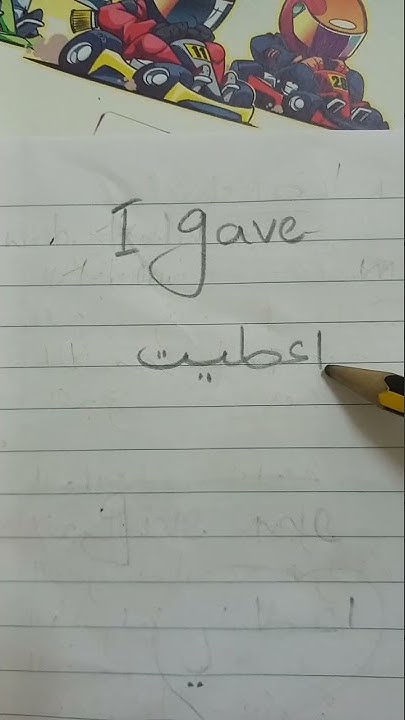 11
I gave
اعطيت